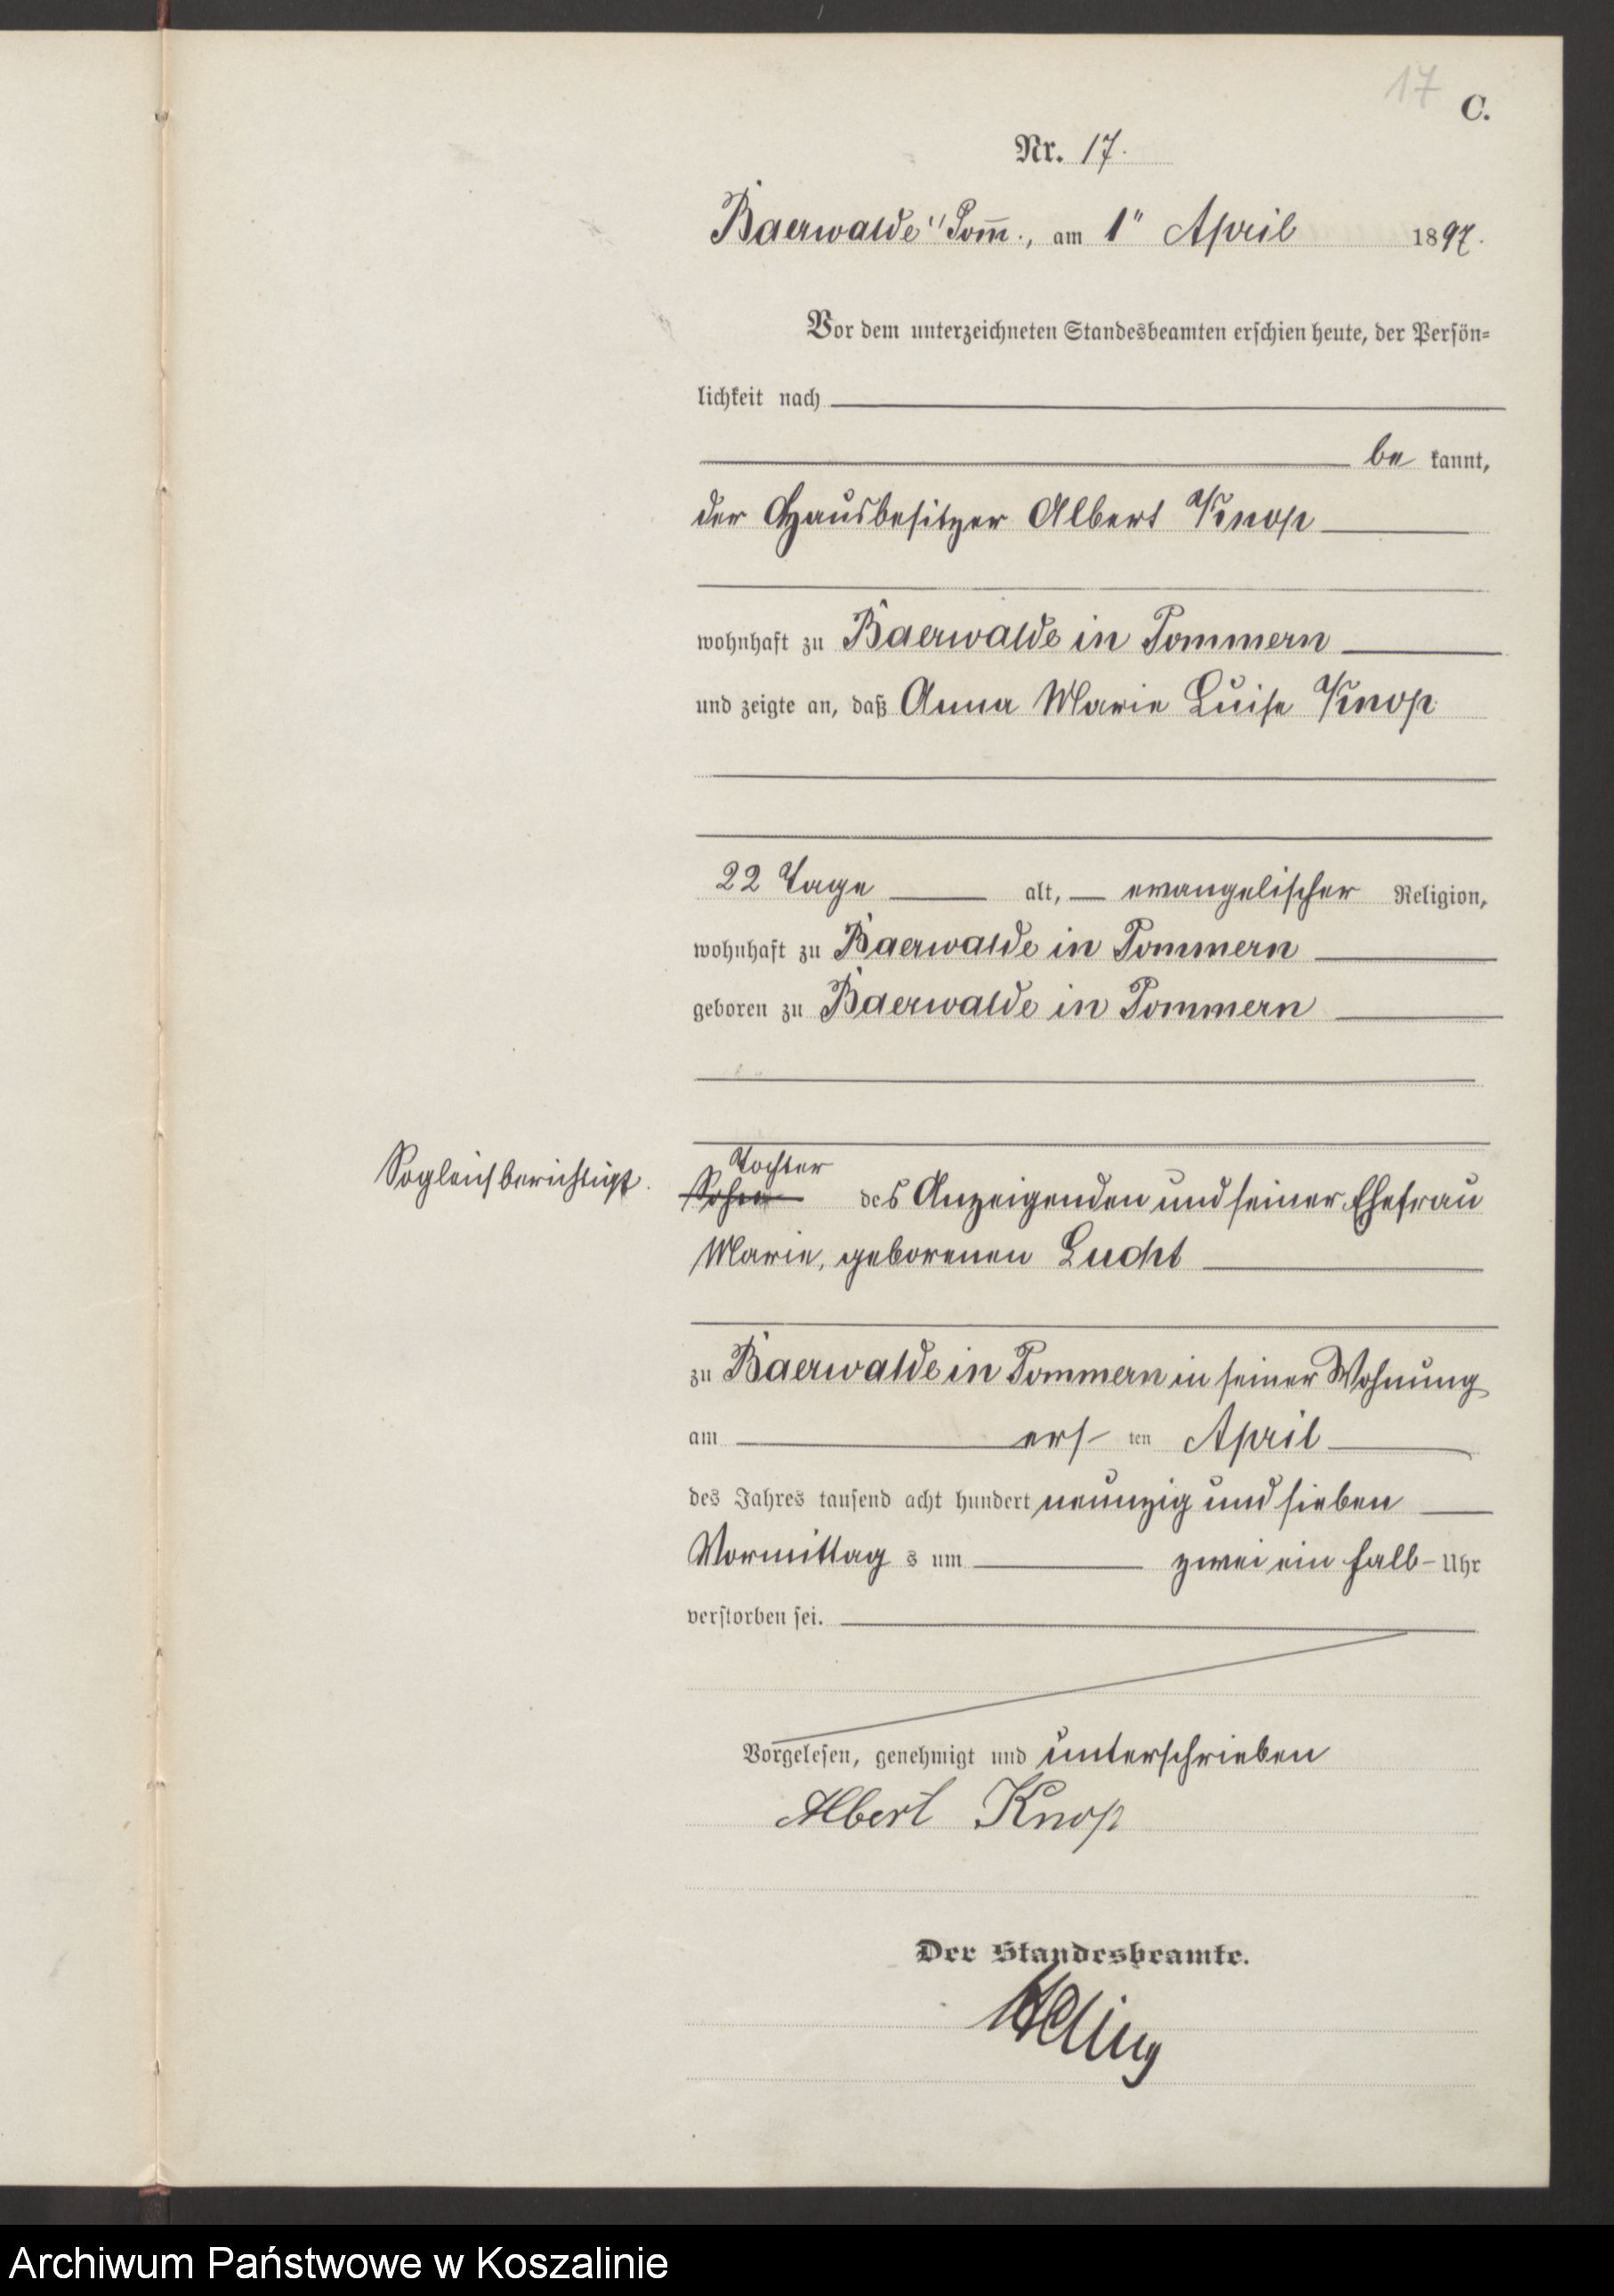 17
C.
Nr. 17.
Baerwalde i/ Pom̄., am 1ten April 1897.
Vor dem unterzeichneten Standesbeamten erschien heute, der Persön-
lichkeit nach
be kannt,
der Hausbesitzer Albert Knop
wohnhaft zu Baerwalde in Pommern
und zeigte an, daß Anna Marie Luise Knop
22 Tage alt, evangelischer Religion,
wohnhaft zu Baerwalde in Pommern
geboren zu Baerwalde in Pommern
Tochter
Sogleich berichtigt. Sohn des Anzeigenden und seiner Ehefrau
Marie, geborenen Lucht
zu Baerwalde in Pommern in seiner Wohnung
am ers ten April
des Jahres tausend acht hundert neunzig und sieben
Vormittag s um zwei ein halb Uhr
verstorben sei.
Vorgelesen, genehmigt und unterschrieben
Albert Knop
Der Standesbeamte.
Archiwum Państwowe w Koszalinie